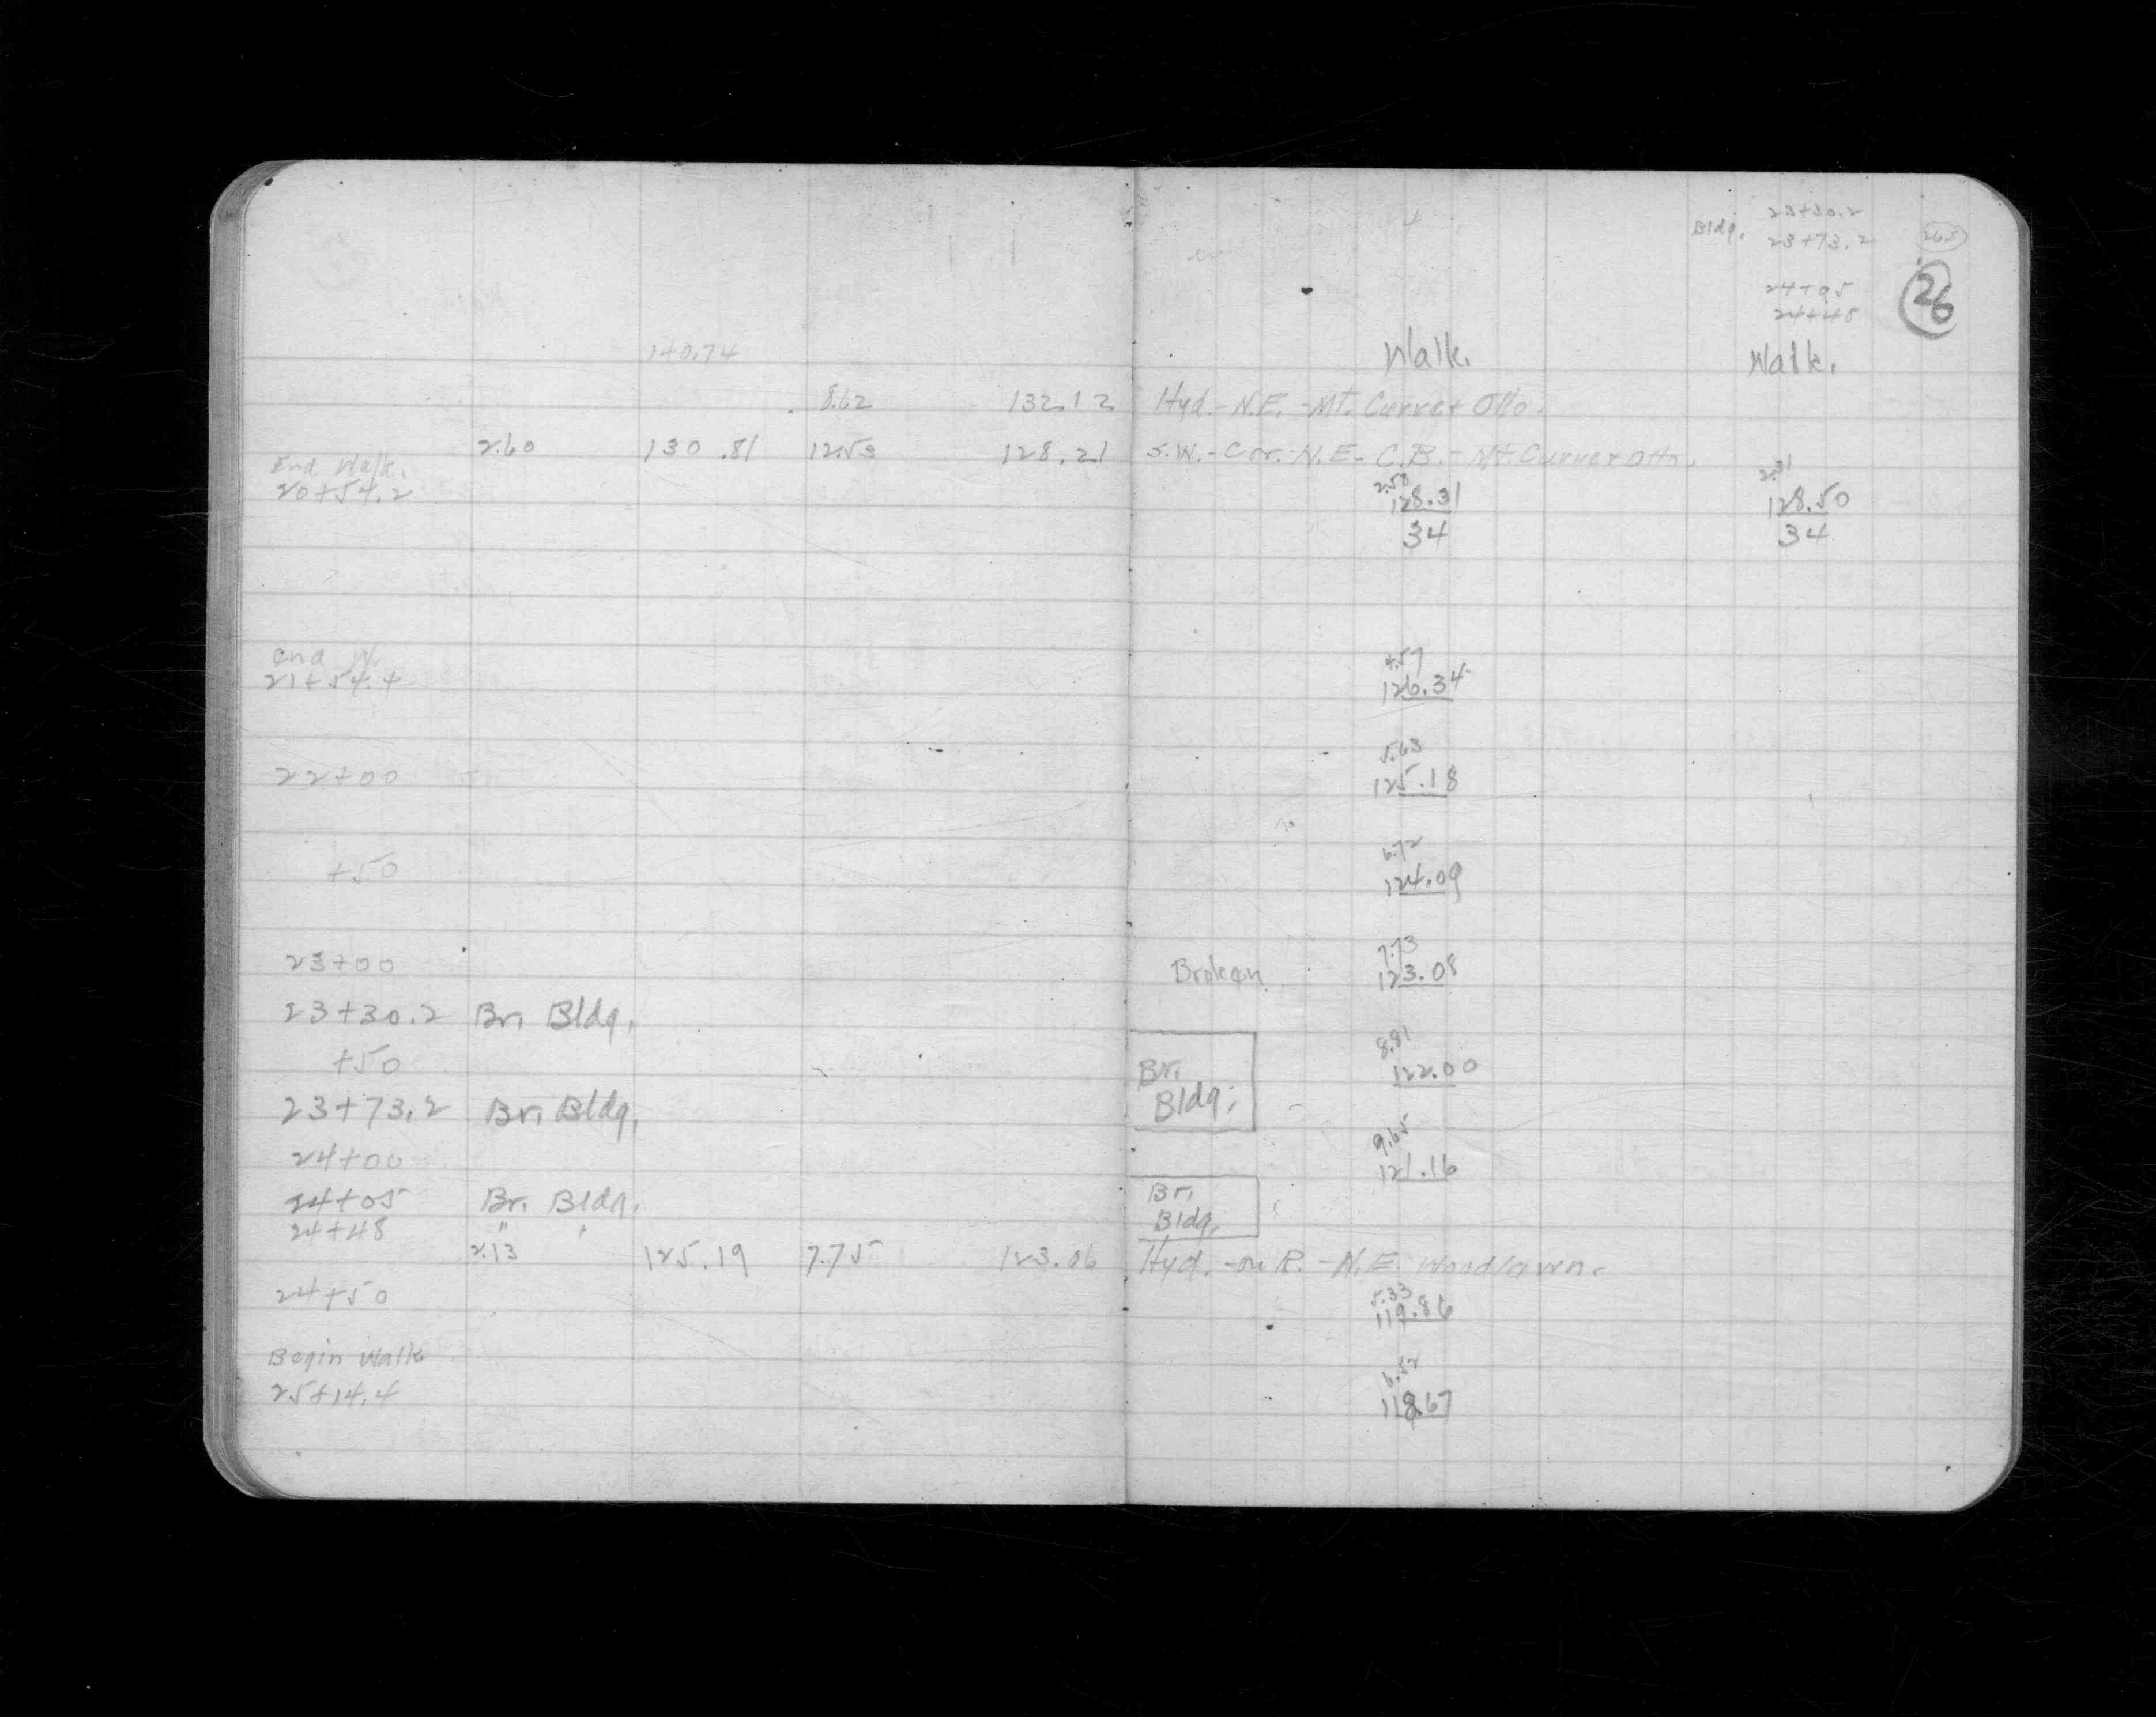 Bldg. 23+30.2
23+73.2
24+05
24+48
26
140.74 Walk. Walk.
8.62 132.12 Hyd.-N.E.-Mt. Curve+Otto.
2.60 130.81 12.53 128.21 S.W.-Cor.-N.E.-C.B.-Mt.Curve+Otto.
End Walk.
20+54.2
2.50 2.31
128.31 128.50
34 34
End W.
21+54.4
4.57
126.34
5.63
22+00 125.18
6.72
+50 124.09
7.73
23+00 Broken 123.08
23+30.2 Br. Bldg.
8.81
+50 Br. 122.00
23+73.2 Br. Bldg. Bldg.
9.65
24+00 121.16
24+05 Br. Bldg. Br.
24+48 " " Bldg.
2.13 125.19 7.75 123.06 Hyd.-on R.-N.E. Woodlawn.
5.33
24+50 119.86
Begin Walk
6.52
25+14.4 118.67